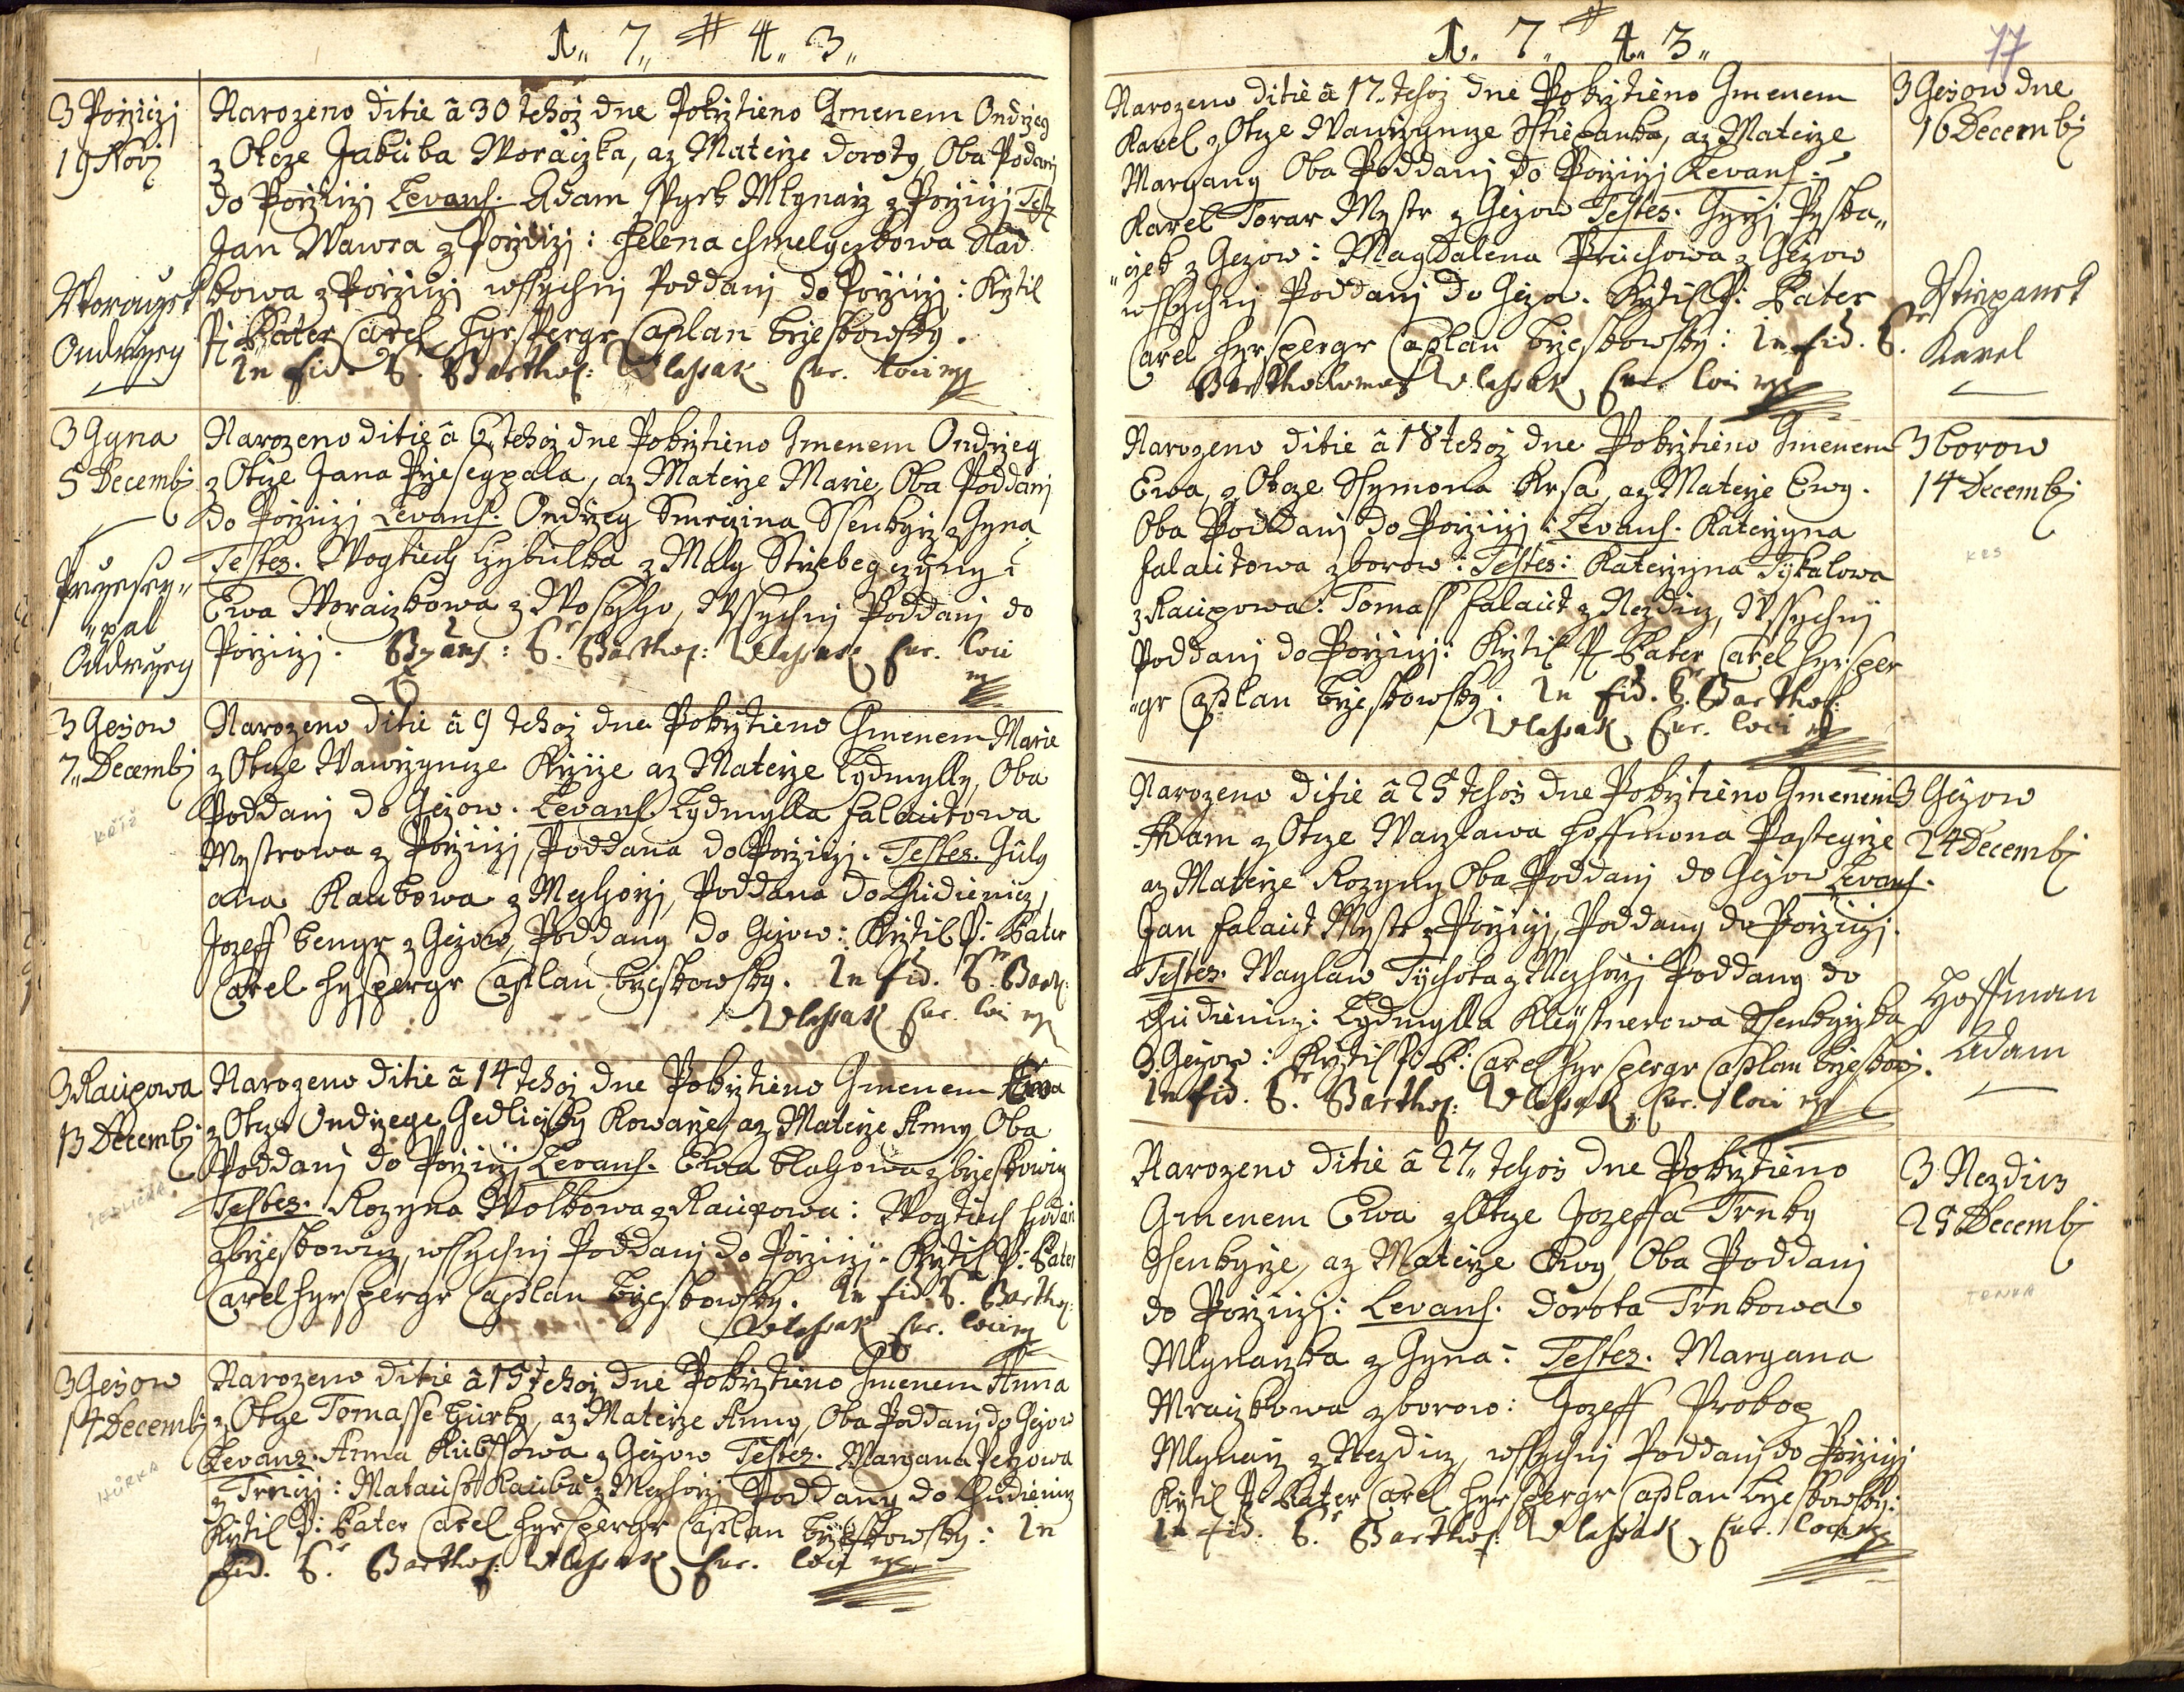 1. 7. 4. 3.
3 Pořziczj
19 Novbj
Narozeno ditie â 30 tehoz dne Pokrztieno Gmenem Ondrzeg
z Otcze Jakuba Woraczka, az Materze Doroty, Oba Poddanj
do Porziczj Levans. Adam Mlynarz z Porziczj Test
Jan Wawra z Porziczj: Helena Chmelgczkowa Slad
kowa z Porziczj wssychnj Poddanj do Porziczj: Krztil
P: Pater Carel Hyrsspergr Caplan Brzeskowsky.
In fid. Barthol: Wlassak Cur. loci mp
Woraczek
Ondrzeg
3 Gyna
5 Decembj
Narozeno ditie â 6 tehoz dne Pokrztieno Gmenem Ondrzeg
z Otcze Jana Przesegpala, az Materze Marie, Oba Poddanj
do Porziczj Levans. Ondrzeg Smrczina Ssenkyrz z Gyna
Testes. Wogtiech Czybulka z Maly Strzebegczyny:
Ewa Woraczkowa z Wosyho, Wssychnj Poddanj do
Porziczj. Barthol: Wlassak Cur. loci
mp
Przesey-
-pal
Ondrzeg
3 Gezow
7. Decembj
Narozeno ditie â 9 tehoz dne Pokrztieno Gmenem Marie
z Otcze Wawrzyncze Krzize az Materze Lydmylly, Oba
Poddanj do Gezow. Levans. Lydmylla Falautowa
Mystrowa z Porziczj, Poddana do Porziczj. Testes. July
ana Kaukowa z Mezhorzj, Poddana do Chudieniz,
Jozeff Bengr z Gezow, Poddany do Gezow: Krztil P: Pater
Carel Hyrspergr Caplan Brzeskowsky. In fid. Barth:
Wlassak Cur. loci mp
KŘÍŽ
3 Raupowa
13 Decembj
Narozeno ditie â 14 tehoz dne Pokrztieno Gmenem Ewa
z Otcze Ondrzege Gedliczky Kowarze, az Materze Anny, Oba
Poddanj do Porziczj Levans. Ewa Blahowa z Brzeskowicz
Testes. Rozyna Wolkowa z Raupowa: Wogtiech
z Brzeskowicz, wssychnj Poddanj do Porziczj. Krztil P: Pater
Carel Hyrspergr Caplan Brzeskowsky. In fid. Barthol:
Wlassak Cur. loci mp
JEDLIČKA
3 Gezow
14 Decembj
Narozeno ditie â 15 tehoz dne Pokrztieno Gmenem Anna
z Otcze Tomasse Hurky, az Materze Anny, Oba Poddanj do Gezow
Levans. Anna Kubssowa z Gezow Testes. Maryana Petzowa
z Trnczj: Kauba z Mezhorzj Poddany do Chudieniz
Krztil P: Pater Carel Hyrspergr Caplan Brzeskowsky: In
fid. Barthol: Wlassak Cur. loci mp
HŮRKA
1. 7. 4. 3.
77
Narozeno ditie â 17. tehoz dne Pokrztieno Gmenem
Karel z Otcze Wawrzyncze Sstiepanka, az Materze
Maryany Oba Poddanj do Porziczj Levans:
Karel Torar Mystr z Gezow Testes. Gyrzj Pyska„
„czek z Gezow: Magdalena Pruchowa z Gezow
wssychnj Poddanj do Gezow. Krztil P: Pater
Carel Hyrspergr Caplan Brzeskowsky: In fid.
Bartholomeus Wlassak Cur. loci mp
3 Gezow dne
16 Decembj
Sstiepanek
Karel
Narozeno ditie â 18 tehoz dne Pokrztieno Gmenem
Ewa, z Otcze Ssymona Krsa, az Materze Ewy.
Oba Poddanj do Porziczj: Levans. Katerzyna
Falautowa z Borow: Testes: Katerzyna Tykalowa
z Raupowa: Tomass Falaut z Nezdicz, Wssychnj
Poddanj do Porziczj: Krztil P: Pater Carel Hyrsper
„gr Caplan Brzeskowsky. In fid. Barthol:
Wlassak Cur. loci mp
3 Borow
14 Decembj
KRS
Narozeno ditie â 25 tehoz dne Pokrztieno Gmenem
Adam z Otcze Waczlawa Hoffmona Pastegrze
az Materze Rozyny Oba Poddanj do Gezow Levans.
Jan Falaut Mystr z Porziczj, Poddany do Porziczj.
Testes. Waczlaw Tychota z Mezhorzj Poddany do
Chudienicz: Lydmylla Kleystnerowa Ssenkyrzka
z Gezow: Krztil P: P: Carel Hyrspergr Caplan Brzeskow:
In fid. Barthol: Wlassak, Cur. loci mp
3 Gezow
24 Decembj
Hoffman
Adam
Narozeno ditie â 27. tehoz dne Pokrztieno
Gmenem Ewa z Otcze Jozeffa Trnky
Ssenkyrze, az Materze Ewy, Oba Poddanj
do Porziczj: Levans. Dorota Trnkowa
Mlynarzka z Gyna: Testes. Maryana
Mraczkowa z Borow: Jozeff Prokop
Mlynarz z Nezdicz, wssychnj Poddanj do Porziczj
Krztil P: Pater Carel Hyrspergr Caplan Brzeskowsky:
In fid. Barthol: Wlassak Cur. loci mp
3 Nezdicz
25 Decembj
TRNKA